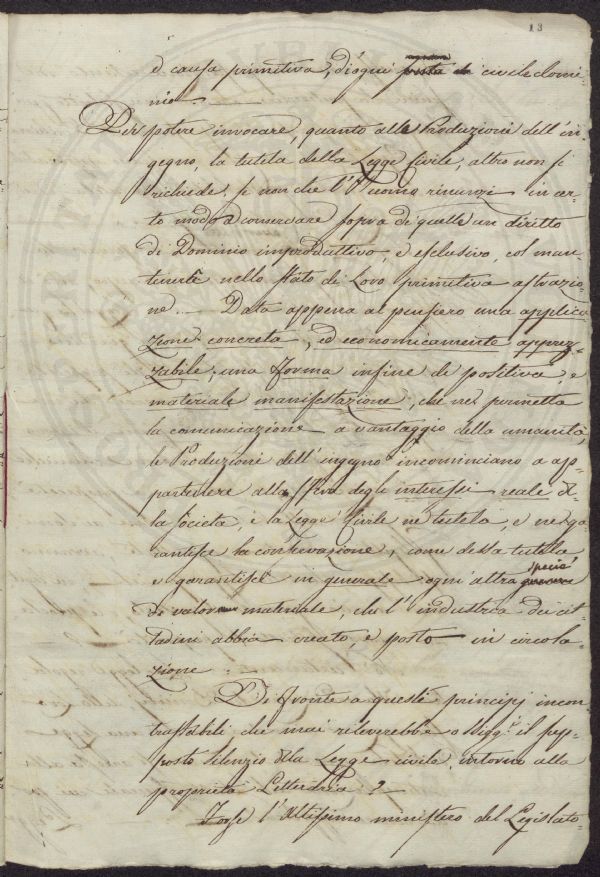 13
e causa primitiva, d'ogni civile domi-
nio
Per potere invocare, quanto alle Produzioni dell'in-
gegno, la tutela della Legge Civile, altro non si
richiede, se non che l'Uomo rinunzi in cer-
to modo a conservare sopra di quelle un diritto
di Dominio improduttivo, e esclusivo, col man-
tenerle nello stato di Loro primitiva astrazio-
ne. Data appena al pensiero una applica-
zione concreta, ed economicamente apprez-
zabile; una forma infine di positiva, e
materiale manifestazione, che ne permetta
la comunicazione a vantaggio della umanità,
le Produzioni dell'ingegno incominciano a ap-
partenere alla sfera degli interessi reale del-
la Società, e la Legge Civile ne tutela, e ne ga-
rantisce la conservazione, come dessa tutela
e garantisce in generale ogni altra specie
di valore materiale, che l'industria dei cit-
tadini abbia creato, e posto in circola-
zione.
Di fronte a questi principj incon-
trastabili che mai rileverebbe o Sigg.ri il sup-
posto silenzio della Legge civile, intorno alla
proprietà Letteraria?
Forse l'Altissimo ministero del Legislato-